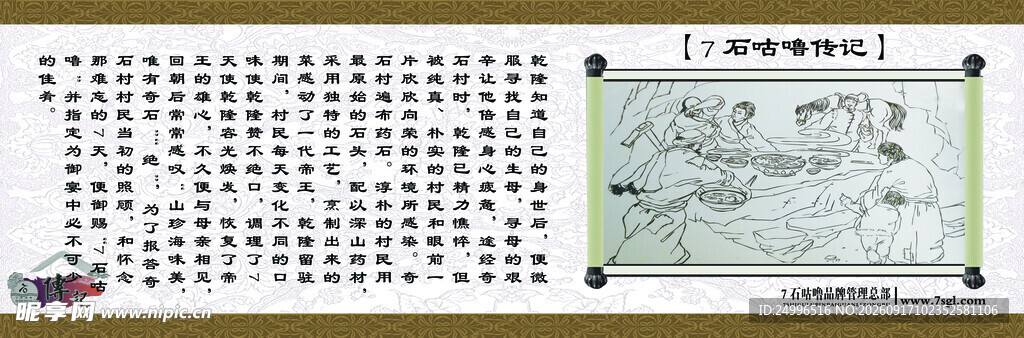 【7石咕噜传记】
乾隆知道自己的身世后，便微
服寻找自己的生母，寻母的艰
辛让他倍感身心疲惫，途经奇
石村时，乾隆已精力憔悴，但
被纯真、朴实的村民和眼前一
片欣欣向荣的环境所感染。奇
石村遍布药石。淳朴的村民用
最原始的石头，配以深山药材，
采用独特的工艺，烹制出来的
菜感动了一代帝王，乾隆留驻
期间，村民每天变化不同的口
味使乾隆赞不绝口，调理了7
天使乾隆容光焕发，恢复了帝
王的雄心，不久便与母亲相见，
回朝后常常感叹：“山珍海味美，
唯有奇石“绝”，为了报答奇
石村村民当初的照顾，和怀念
那难忘的7天，便御赐“7石咕
噜”并指定为御宴中必不可少
的佳肴。
7石咕噜品牌管理总部
www.7sgl.com
傳記
昵享网 www.nipic.cn
ID:24996516 NO:20260917102352581106